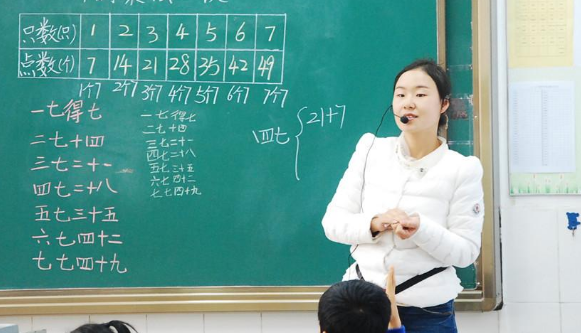 只数(只) 1 2 3 4 5 6 7
点数(个) 7 14 21 28 35 42 49
1个7 2个7 3个7 4个7 5个7 6个7 7个7
一七得七
二七十四
三七二十一
四七二十八
五七三十五
六七四十二
七七四十九
一七得七
二七十四
三七二十一
四七二十八
五七三十五
六七四十二
七七四十九
四七 21+7